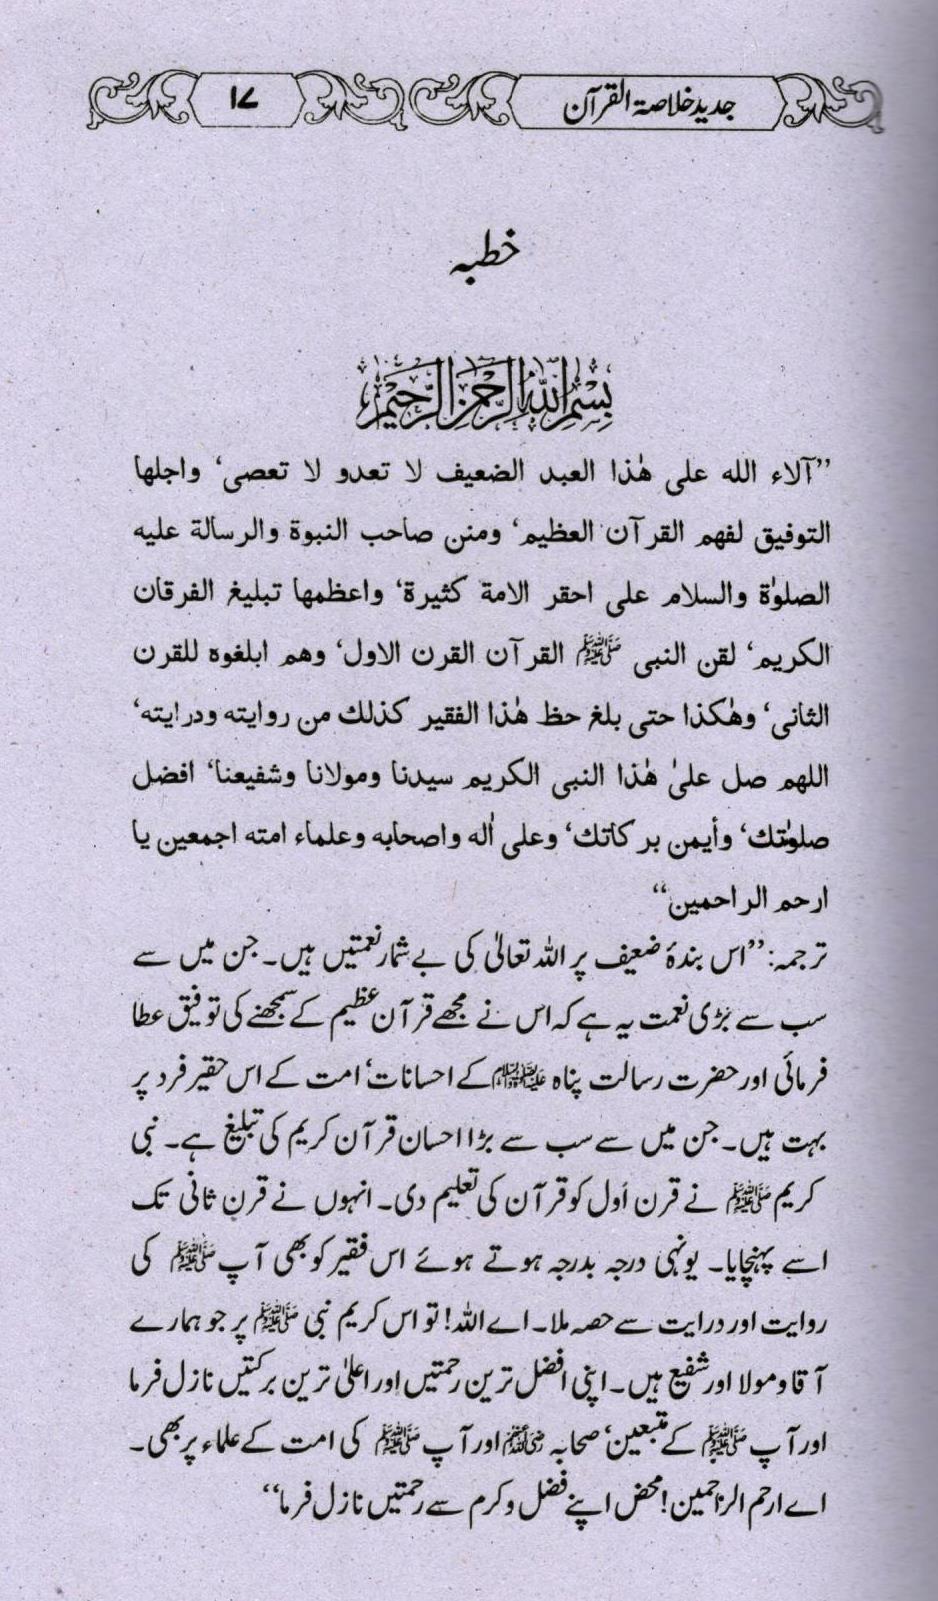 جدید خلاصۃ القرآن
۱۷
خطبہ
بِسْمِ اللّٰهِ الرَّحْمٰنِ الرَّحِيْمِ
”آلاء الله على هٰذا العبد الضعيف لا تعدو لا تعصى‘ واجلها
التوفيق لفهم القرآن العظيم‘ ومنن صاحب النبوة والرسالة عليه
الصلوٰة والسلام على احقر الامة كثيرة‘ واعظمها تبليغ الفرقان
الكريم‘ لقن النبى ﷺ القرآن القرن الاول‘ وهم ابلغوه للقرن
الثانى‘ وهٰكذا حتى بلغ حظ هٰذا الفقير كذلك من روايته ودرايته‘
اللهم صل علىٰ هٰذا النبى الكريم سيدنا ومولانا وشفيعنا‘ افضل
صلوٰتك‘ وأيمن بركاتك‘ وعلى اٰله واصحابه وعلماء امته اجمعين يا
ارحم الراحمين“
ترجمہ: ”اس بندۂ ضعیف پر اللہ تعالیٰ کی بے شمار نعمتیں ہیں۔ جن میں سے
سب سے بڑی نعمت یہ ہے کہ اس نے مجھے قرآن عظیم کے سمجھنے کی توفیق عطا
فرمائی اور حضرت رسالت پناہ علیہ الصلوٰۃ والسلام کے احسانات‘ امت کے اس حقیر فرد پر
بہت ہیں۔ جن میں سے سب سے بڑا احسان قرآن کریم کی تبلیغ ہے۔ نبی
کریم ﷺ نے قرن اَول کو قرآن کی تعلیم دی۔ انہوں نے قرن ثانی تک
اسے پہنچایا۔ یونہی درجہ بدرجہ ہوتے ہوئے اس فقیر کو بھی آپ ﷺ کی
روایت اور درایت سے حصہ ملا۔ اے اللہ! تو اس کریم نبی ﷺ پر جو ہمارے
آقا و مولا اور شفیع ہیں۔ اپنی افضل ترین رحمتیں اور اعلیٰ ترین برکتیں نازل فرما
اور آپ ﷺ کے متبعین‘ صحابہ رضی اللہ عنہم اور آپ ﷺ کی امت کے علماء پر بھی۔
اے ارحم الراحمین! محض اپنے فضل و کرم سے رحمتیں نازل فرما“